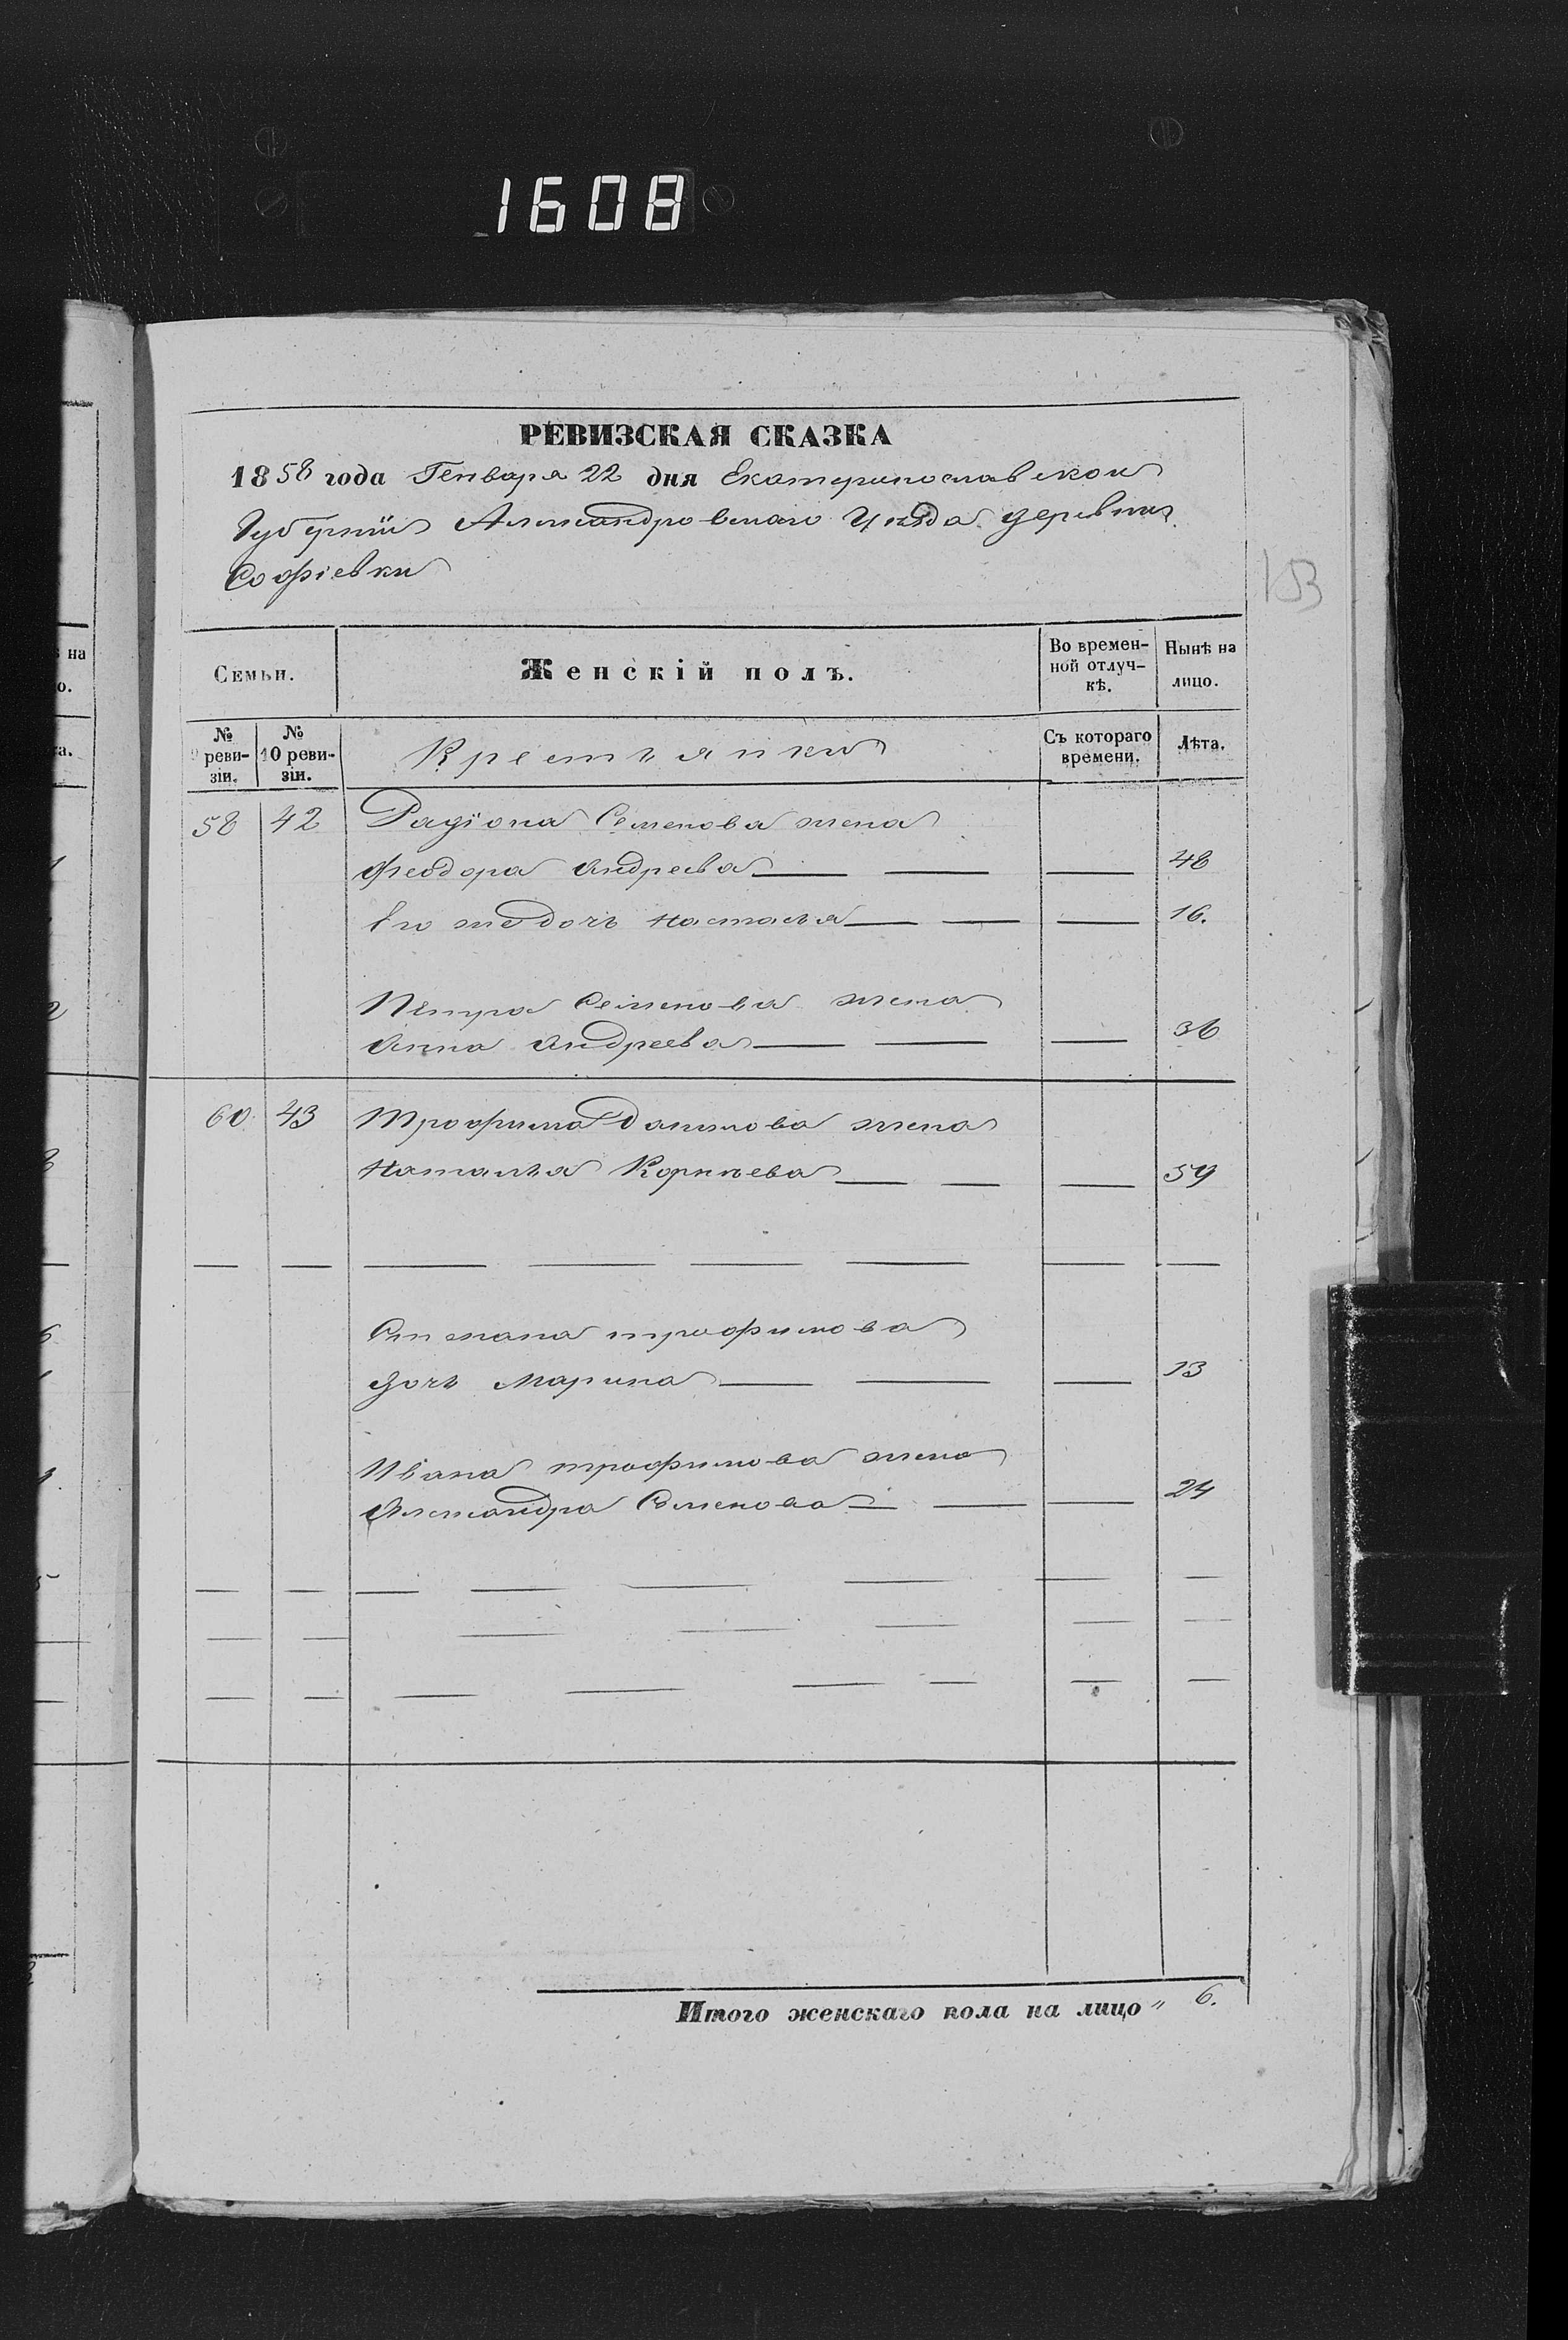 1608
РЕВИЗСКАЯ СКАЗКА
1858 года Генваря 22 дня Екатеринославской
Губерніи Александровскаго Уѣзда деревни
Софіевки
153
на
о.
а.
Семьи.
Женскій полъ.
Во времен-
ной отлуч-
кѣ.
Нынѣ на
лицо.
№
9 реви-
зіи.
№
10 реви-
зіи.
Крестьянки
Съ котораго
времени.
Лѣта.
58 42 Радіона Семенова жена
Феодора Андреева — — — 48
Его же дочь Настасья — — — 16.
Петра Семенова жена
Анна Андреева — — — 36
60 43 Трофима Данилова жена
Наталья Корнѣева — — — 59
— — — — — — — —
Степана трофимова
дочь Марина — — — 13
Ивана трофимова жена
Александра Семенова — — — 24
— — — — — — — —
— — — — — — —
— — — — — — — —
Итого женскаго пола на лицо „ 6.